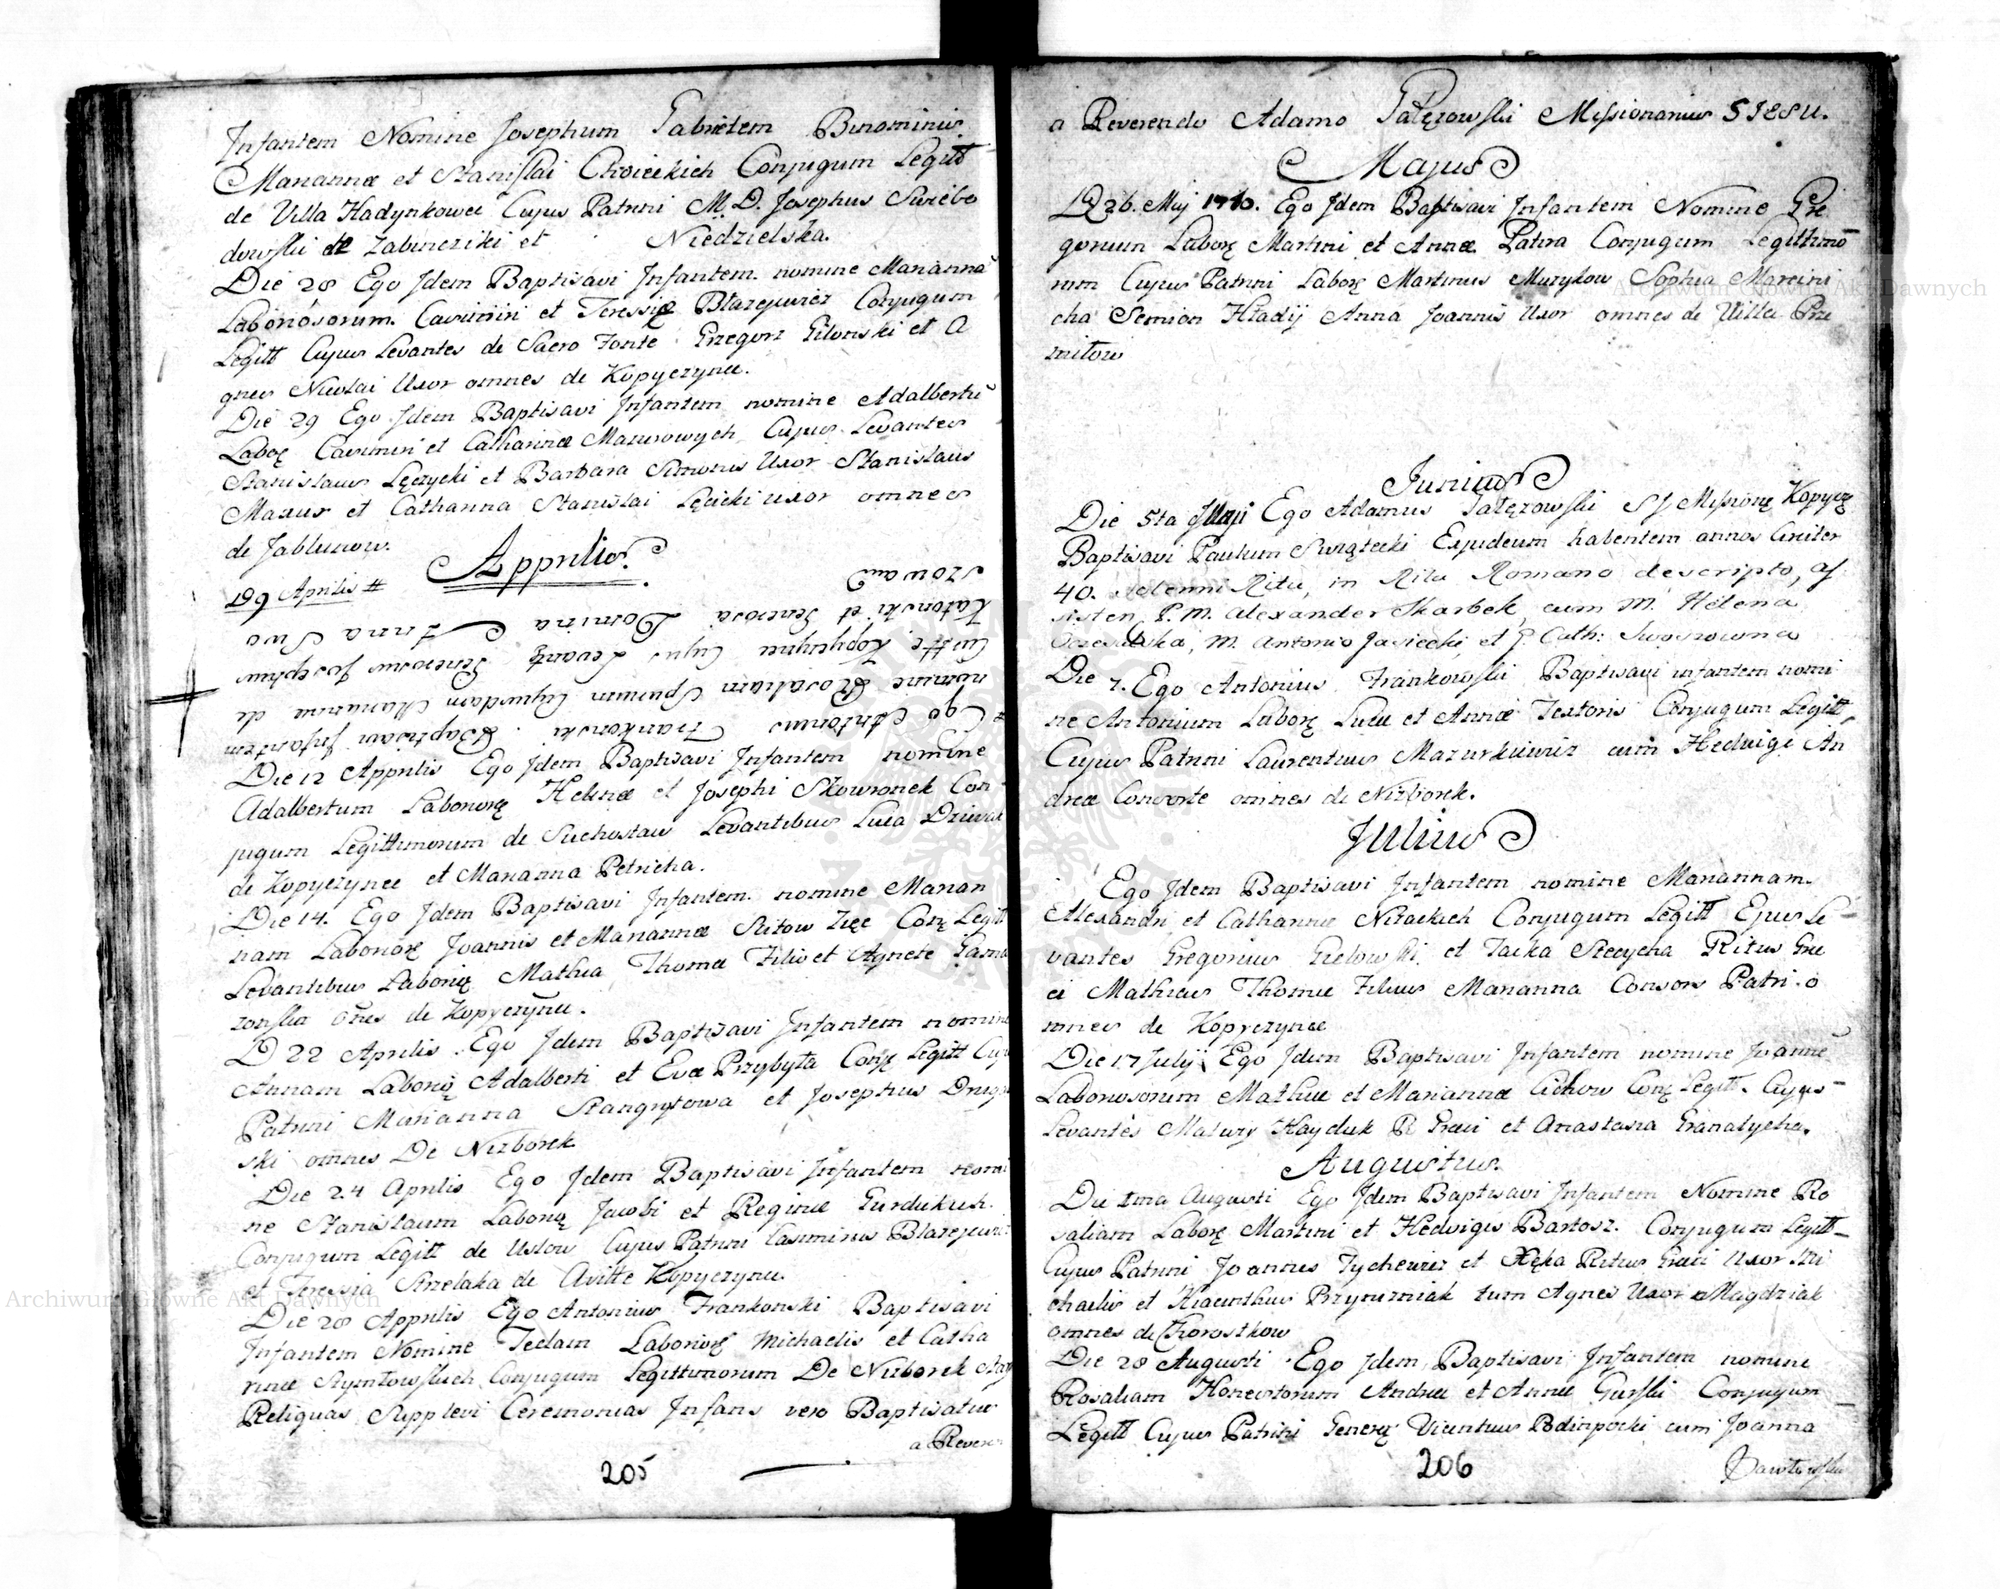 Infantem Nomine Josephum Gabrielem Binominis.
Mariannæ et Stanislai Choieckich Conjugum Legitt
de Villa Hadynkowce Cujus Patrini M. D. Josephus Swiebo
dowski de Zabincziki et Niedzielska.
Die 28 Ego Idem Baptisavi Infantem nomine Mariannã
Laboriosorum Casimiri et Teressiæ Błazejewicz Conjugum
Legitt Cujus Levantes de Sacro Fonte Grzegorz Gilonski et A
gnes Nicolai Uxor omnes de Kopyczynce.
Die 29 Ego Idem Baptisavi Infantem nomine Adalbertũ
Labor Casimiri et Catharinæ Mazurowych Cujus Levantes
Stanislaus Lęczycki et Barbara Simonis Uxor Stanislaus
Mazur et Catharina Stanislai Lęcicki uxor omnes
de Jablunow.
Apprilis.
D 9 Aprilis #
Ego Antonius Frankonski Baptisavi Infantem
nomine Rosaliam Spuriam Cujusdam Mariannæ de
Civitte Kopyczynce Cujus Levantes Generosus Josephus
Katonski et Generosa Domina Anna Swo
szowa
Die 12 Apprilis Ego Idem Baptisavi Infantem nomine
Adalbertum Laborioſ Helenæ et Josephi Skowronek Con
jugum Legittimorum de Suchostaw Levantibus Luca
de Kopyczynce et Marianna Petricha.
Die 14. Ego Idem Baptisavi Infantem nomine Marian
nam Laborioſ Joannis et Mariannæ Conj Legitt
Levantibus Laborioſ Mathia Thomæ Filio et Agnete
oñes de Kopyczynce.
D 22 Aprilis Ego Idem Baptisavi Infantem nomine
Annam Laborioſ Adalberti et Evæ Przybyła Conj Legitt Cujus
Patrini Marianna Stangrytowa et Josephus
ski omnes De Nizborek
Die 24 Aprilis Ego Idem Baptisavi Infantem nomi
ne Stanislaum Laborioſ Jacobi et Reginæ Gurdukuch
Conjugum Legitt de Uslow Cujus Patrini Casimirus Błazejewicz
et Teressia Strzelaka de Civitte Kopyczynce.
Die 28 Apprilis Ego Antonius Frankonski Baptisavi
Infantem Nomine Teclam Laborioſ Michaelis et Catha
rinæ Szymłowskich Conjugum Legittimorum De Nizborek
Reliquas Supplevi Ceremonias Infans vero Baptisatus
a Reveren
205
a Reverendo Adamo Gałęzowski Missionarius S IESU.
Majus
D 26. Maij 1710. Ego Idem Baptisavi Infantem Nomine Gre
gorium Labor Martini et Annæ Patira Conjugum Legittimo
rum Cujus Patrini Labor Martinus Muzykow Sophia Marcini
cha Semion Hładij Anna Joannis Uxor omnes de Villa Prze
mitow
Junius
Die 5ta Maji Ego Adamus Gałęzowski S J Mission Kopycz
Baptisavi Paulum Swiątecki Exjudeum habentem annos Circiter
40. solemni Ritu, in Ritu Romano descripto, as
sisten, P. M. Alexander Skarbek, cum M. Helena
M. Antonio Jasiecki, et G. Cath:
Die 7. Ego Antonius Frankowski Baptisavi infantem nomi
ne Antonium Labor Lucæ et Annæ Textoris Conjugum Legitt,
Cujus Patrini Laurentius Mazurkiewicz cum Hedvige An
dreæ Consorte omnes de Nizborek.
Julius
Ego Idem Baptisavi Infantem nomine Mariannam
Alexandri et Catharinæ Conjugum Legitt Ejus Le
vantes Gregorius Gielowski et Tacka Stecycha Ritus Græ
ci Mathias Thomæ Filius Marianna Consors Patri o
mnes de Kopyczynce
Die 17 Julij Ego Idem Baptisavi Infantem nomine Joannẽ
Laboriosorum Mathiæ et Mariannæ Cichow Conj Legitt. Cujus
Levantes Matwiy Hayduk R Græci et Anastasia Granatycha.
Augustus.
Die 1ma Augusti Ego Idem Baptisavi Infantem Nomine Ro
saliam Labor Martini et Hedvigis Bartosz. Conjugum Legitt
Cujus Patrini Joannes Tychewicz et Ritus Græci Uxor Mi
chaelis et Hiacinthus Przymiriak tum Agnes Uxor Magdziak
omnes de Chorostkow
Die 28 Augusti Ego Idem Baptisavi Infantem nomine
Rosaliam Honestorum Andreæ et Annæ Gurski Conjugum
Legitt Cujus Patrini Gener Vicentius Podinpocki cum Joanna
Pawłowska
206
Archiwum Główne Akt Dawnych
Archiwum Główne Akt Dawnych